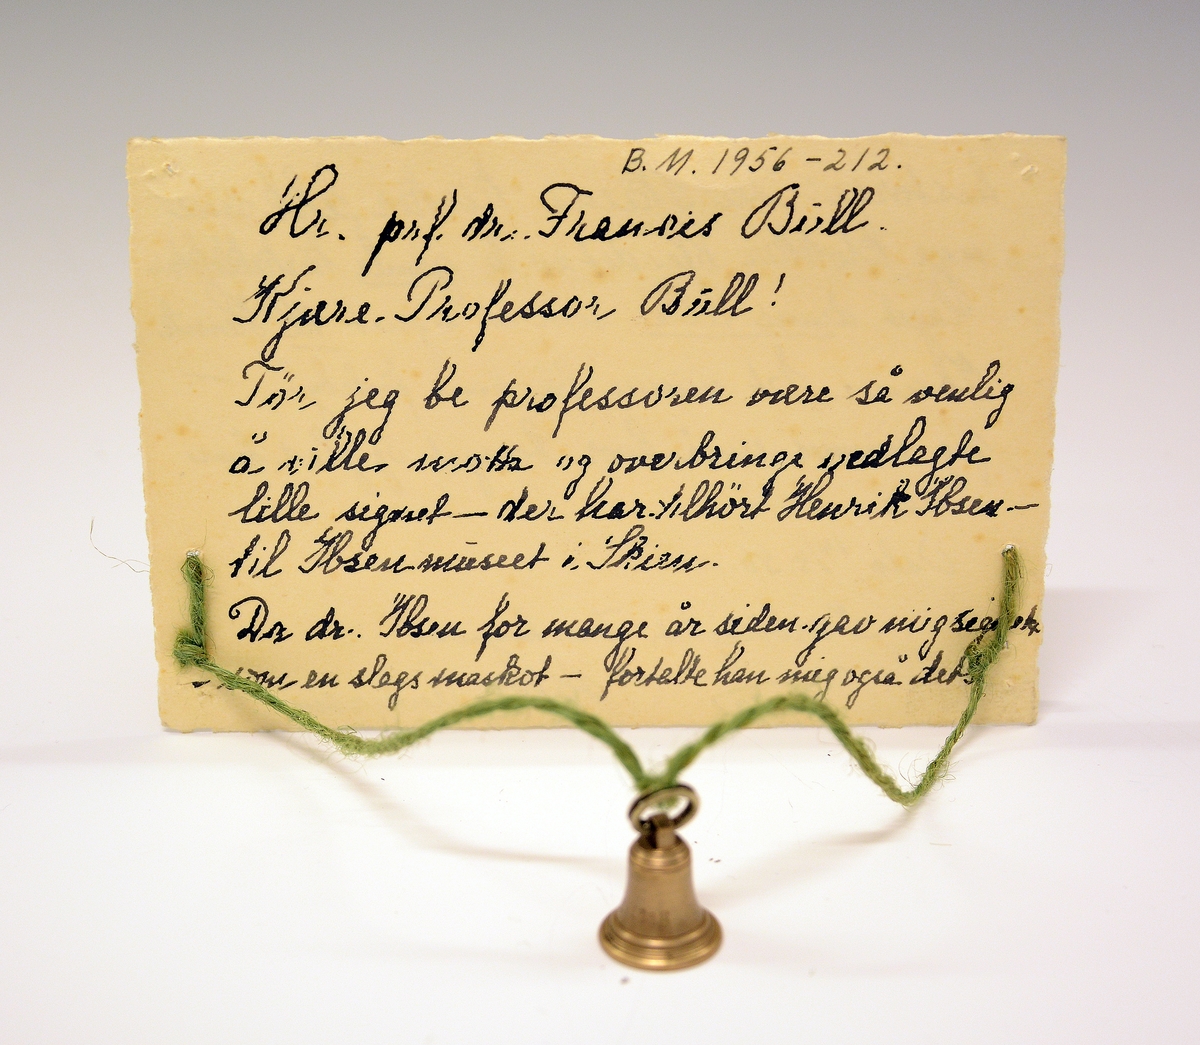 B.M. 1956-212.
Hr. prf. dr. Francis Büll.
Kjære Professor Büll!
Tör jeg be professoren være så venlig
å ville motta og overbringe vedlagte
lille signet - der har tilhört Henrik Ibsen -
til Ibsenmuseet i Skien.
Da dr. Ibsen for mange år siden gav mig signetet
- som en slags maskot - fortalte han mig også det